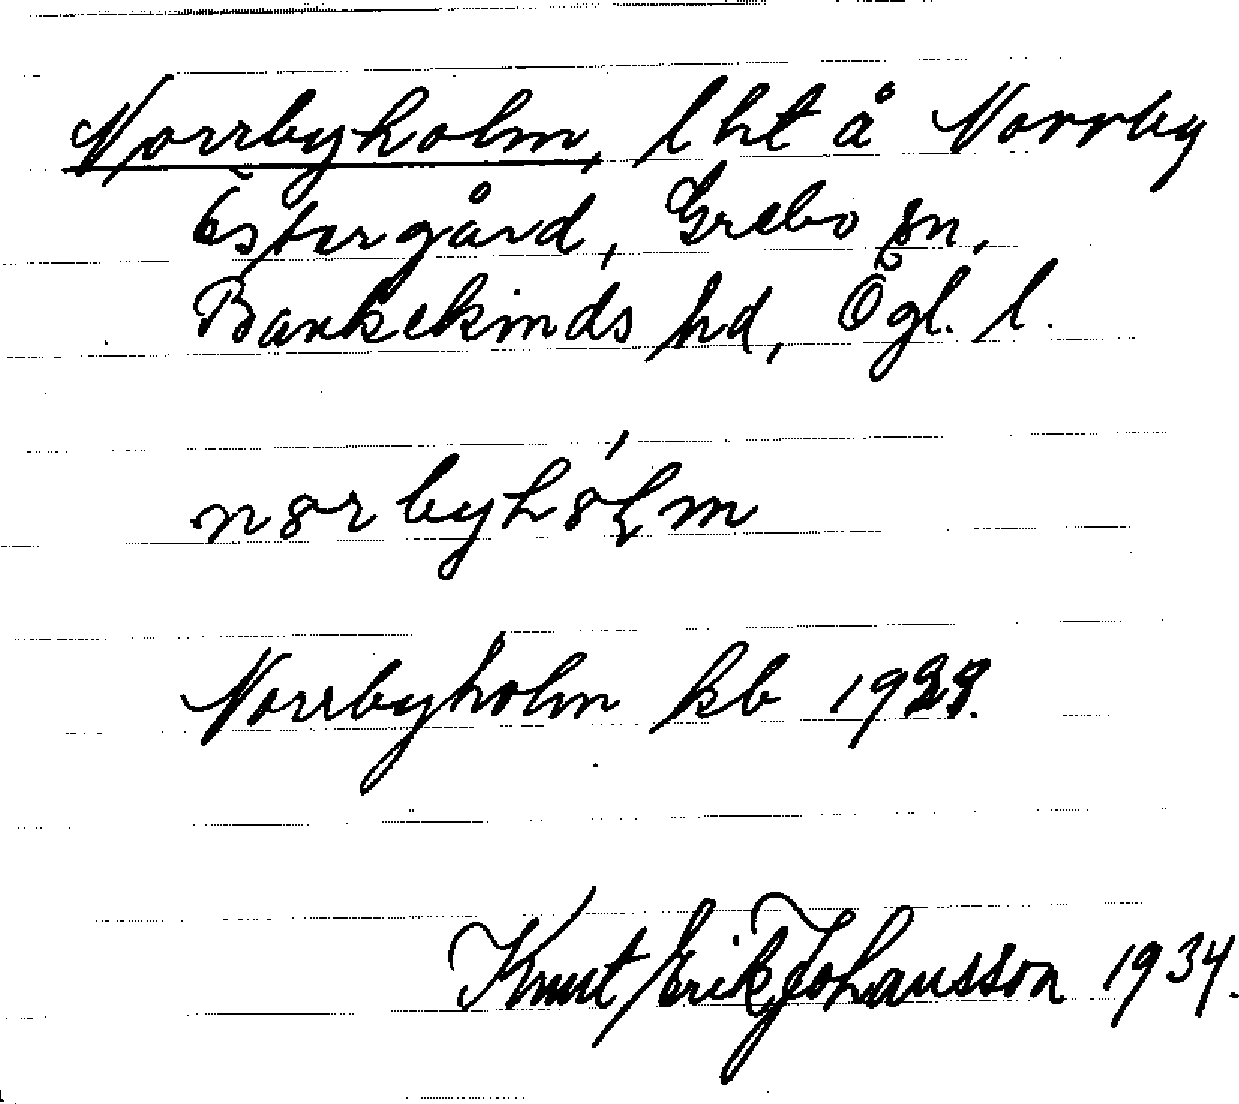 Norrbyholm, lht å Norrby
Östergård, Grebo sn,
Bankekinds hd, Ögl. l.
Norrbyholm kb 1929.
Knut Erik Johansson 1934.